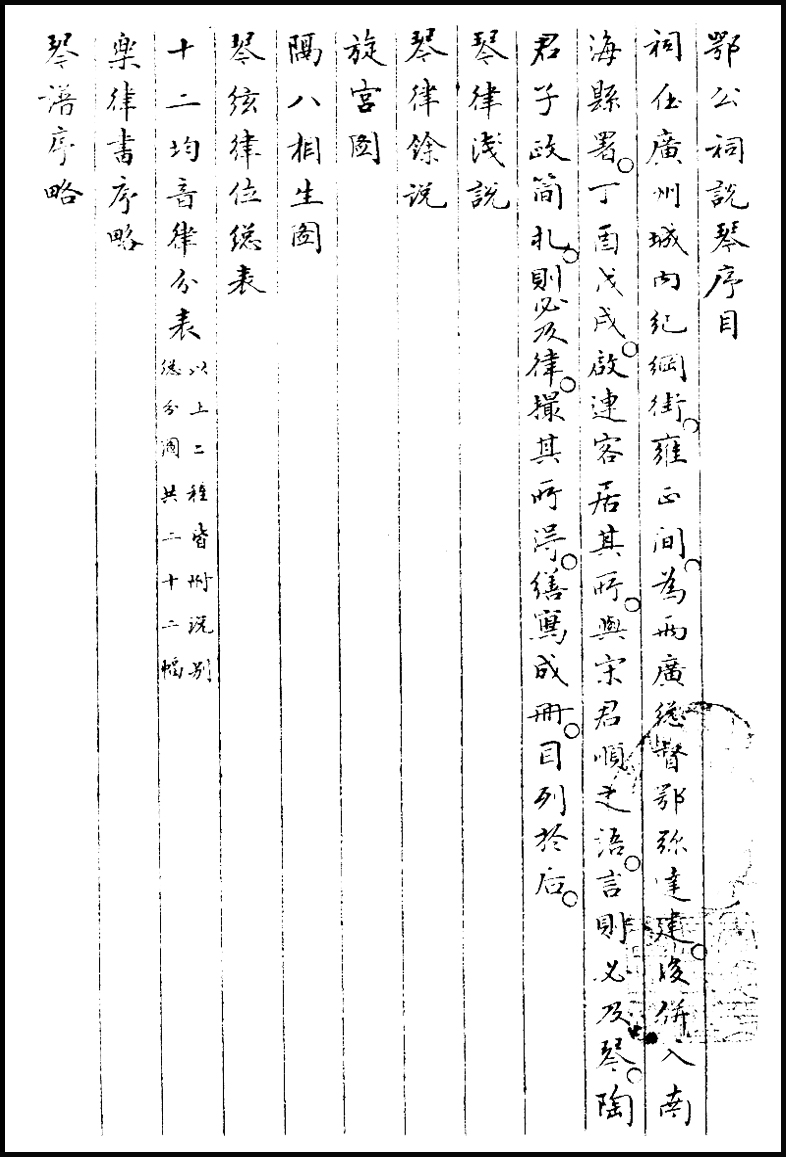 鄂公祠説琴序目
祠在廣州城内紀綱街。雍正间。為兩廣總督鄂弥達建。後併入南
海縣署。丁酉戊戌。啟連客居其所。與宋君順之語。言則必及琴。陶
君子政简札。則必及律。撮其所得。繕寫成冊。目列於后。
琴律淺説
琴律餘说
旋宫圖
隔八相生圖
琴絃律位總表
十二均音律分表以上二種皆附说别
總分圖共二十二幅
樂律書序略
琴譜序略